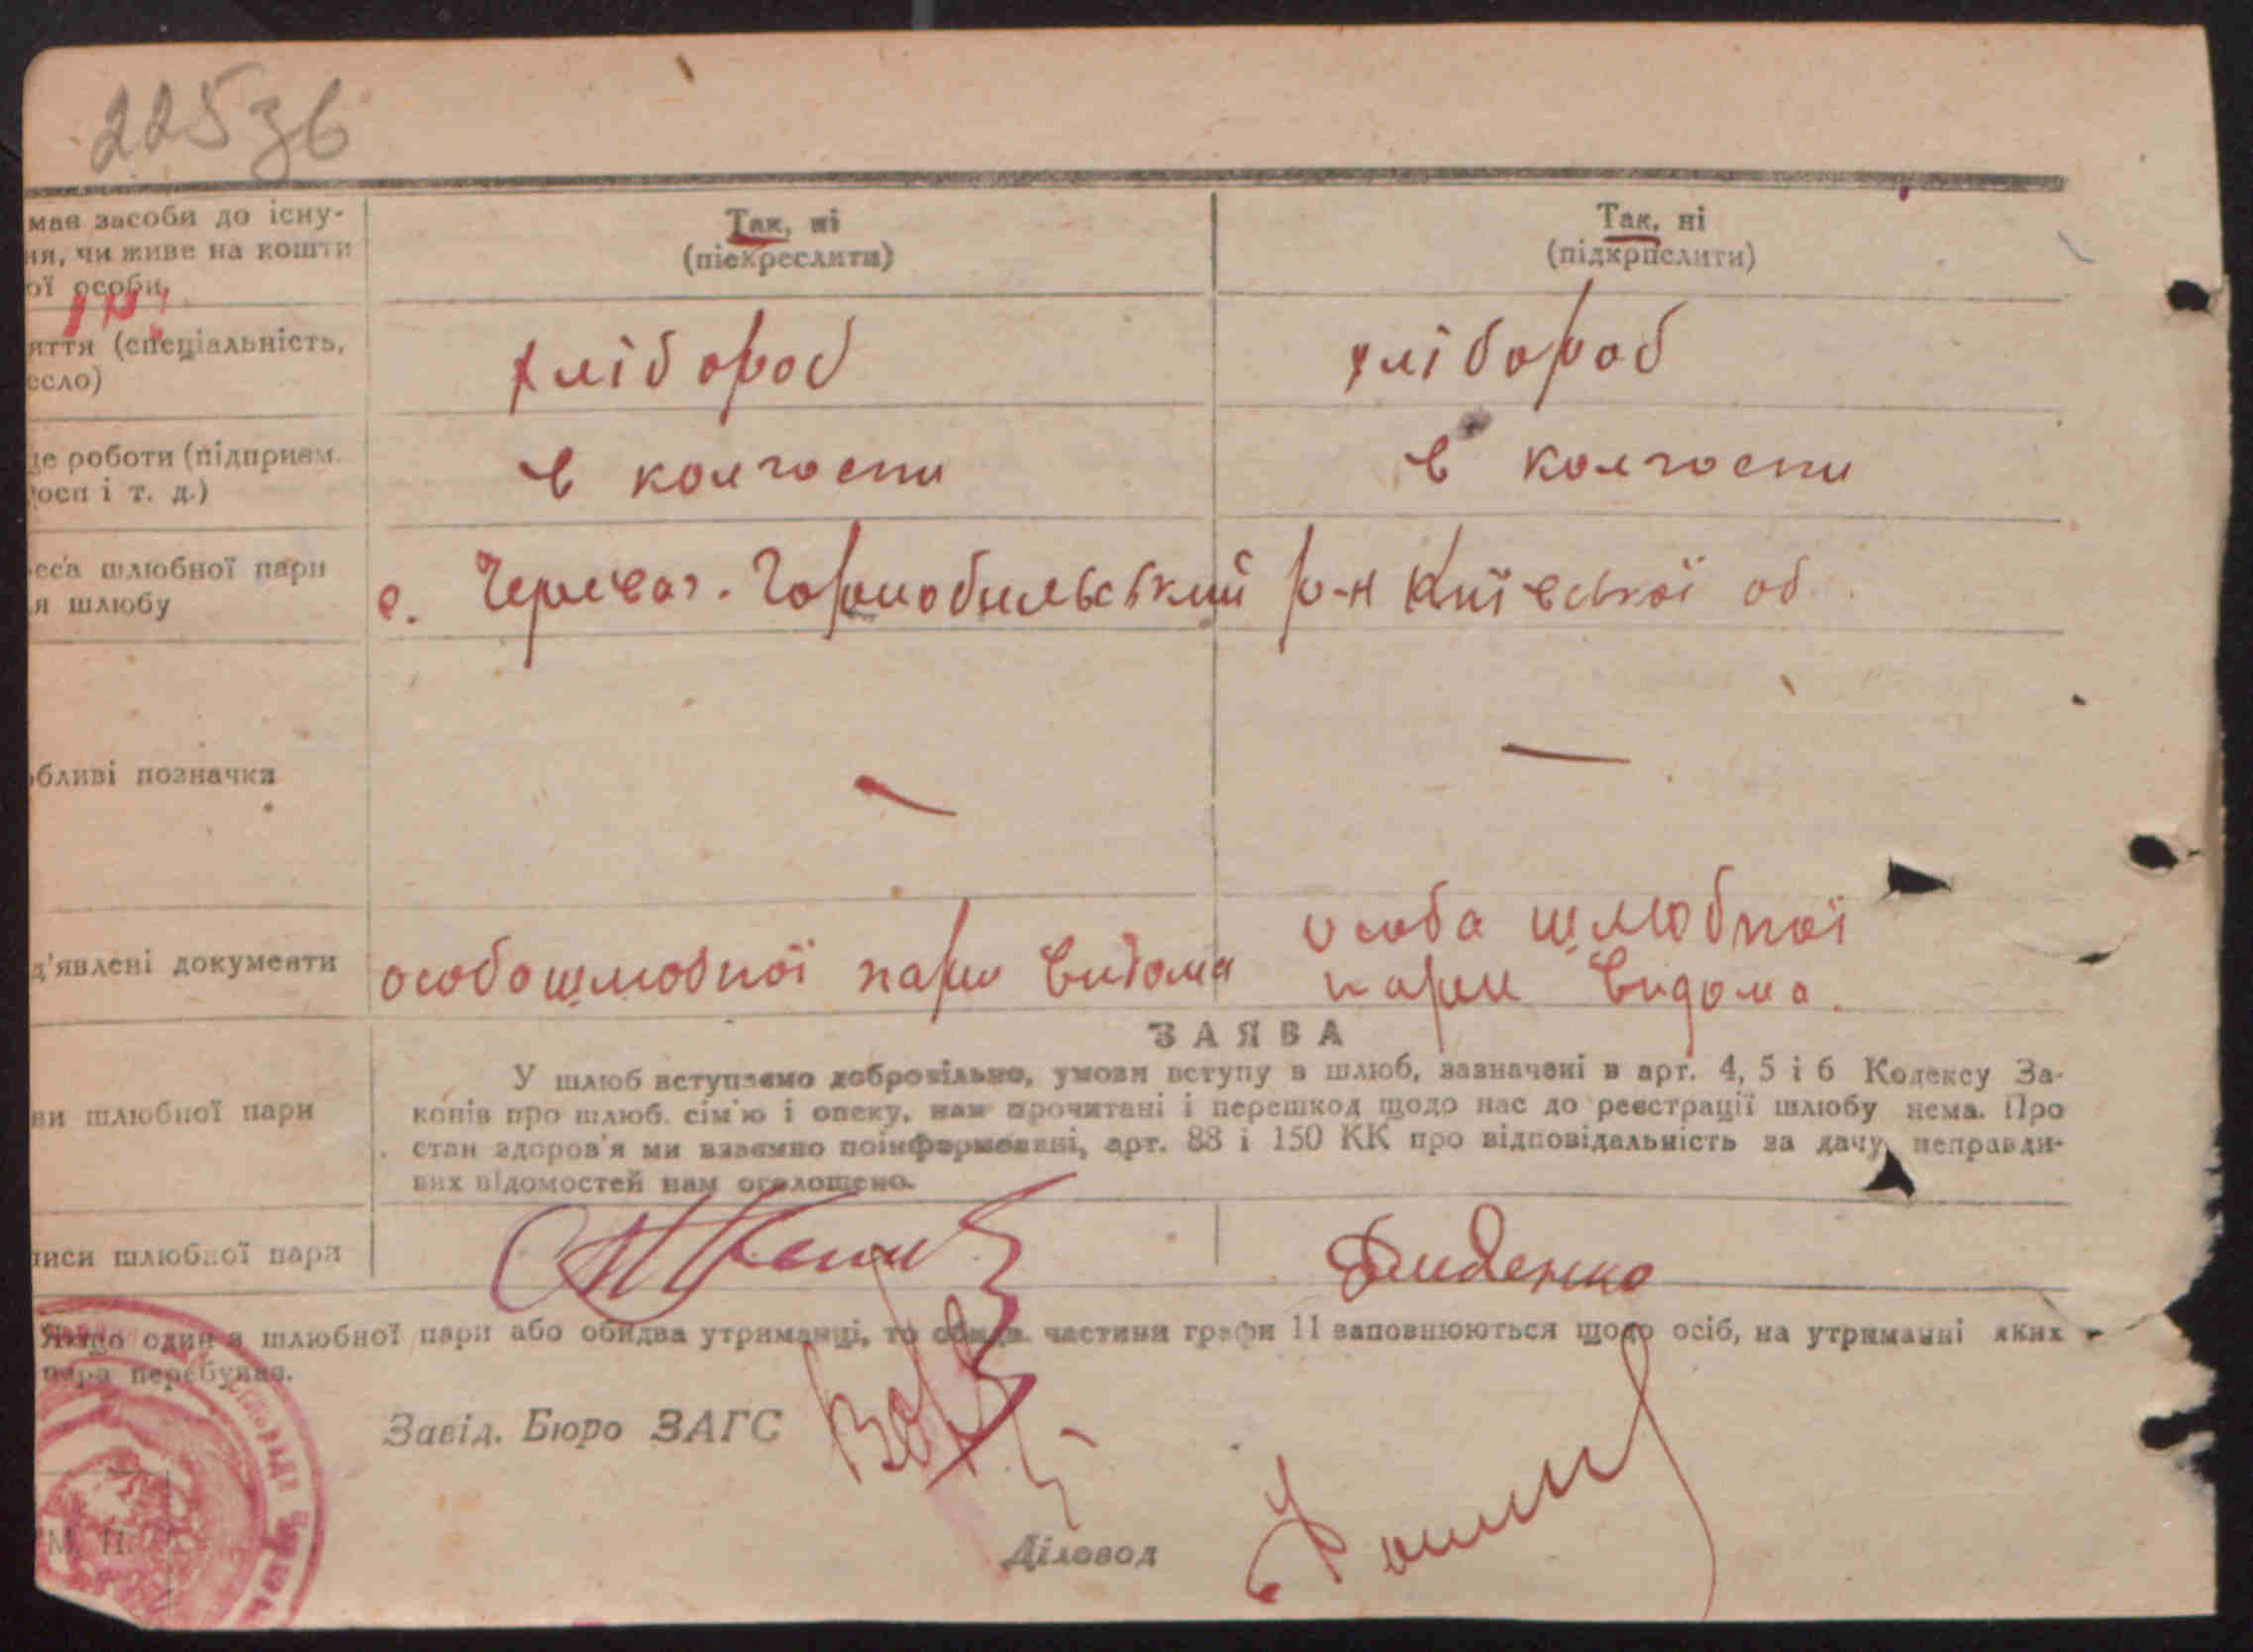 225зв
має засоби до існу-
ня, чи живе на кошти
ої особи,
Так, ні
(піекреслити)
Так, ні
(підкрпслити)
яття (спеціальність,
есло)
хлібороб
хлібороб
це роботи (підприєм.
осп і т. д.)
в колгоспи
в колгоспи
еса шлюбної пари
я шлюбу
с. Черевач. Чорнобильський р-н Київської об.
бливі позначки
—
—
д'явлені документи
особошлюбної пари видома
особа шлюбної
пари видома.
ЗАЯВА
ви шлюбної пари
У шлюб вступаємо добровільно, умови вступу в шлюб, зазначені в арт. 4, 5 і 6 Кодексу За-
конів про шлюб. сім'ю і опеку, нам прочитані і перешкод щодо нас до реєстрації шлюбу нема. Про
стан здоров'я ми взаємно поінформовані, арт. 88 і 150 КК про відповідальність за дачу неправди-
вих відомостей нам оголошено.
писи шлюбної пари
Диденко
Якщо один з шлюбної пари або обидва утриманці, то обидв. частини графи 11 заповнюються щодо осіб, на утриманні яких
пара перебуває.
Завід. Бюро ЗАГС
М. П.
Діловод